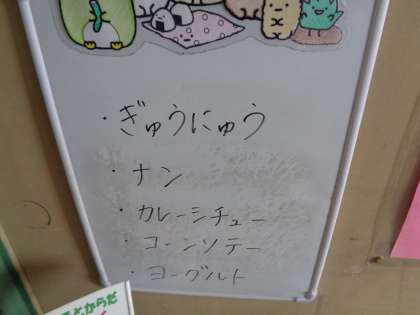 ・ぎゅうにゅう
・ナン
・カレーシチュー
・コーンソテー
・ヨーグルト
とからだ